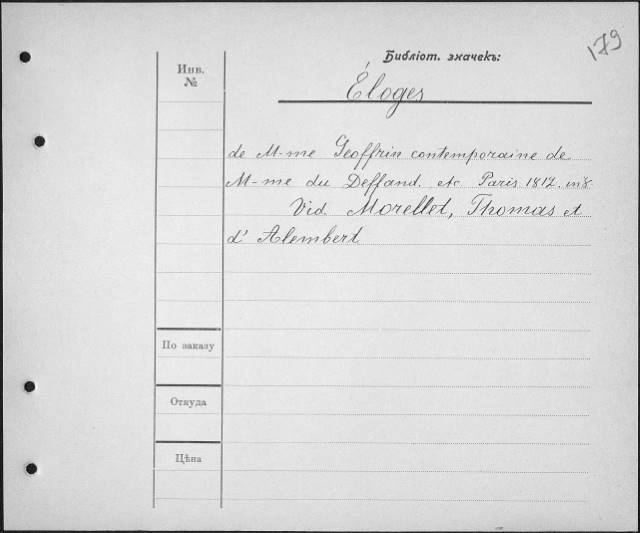 179
Библіот. значекъ:
Инв.
№
Éloges
de M-me Geoffrin contemporaine de
M-me du Deffand. etc Paris 1812. in 8.
Vid. Morellet, Thomas et
d' Alembert
По заказу
Откуда
Цѣна